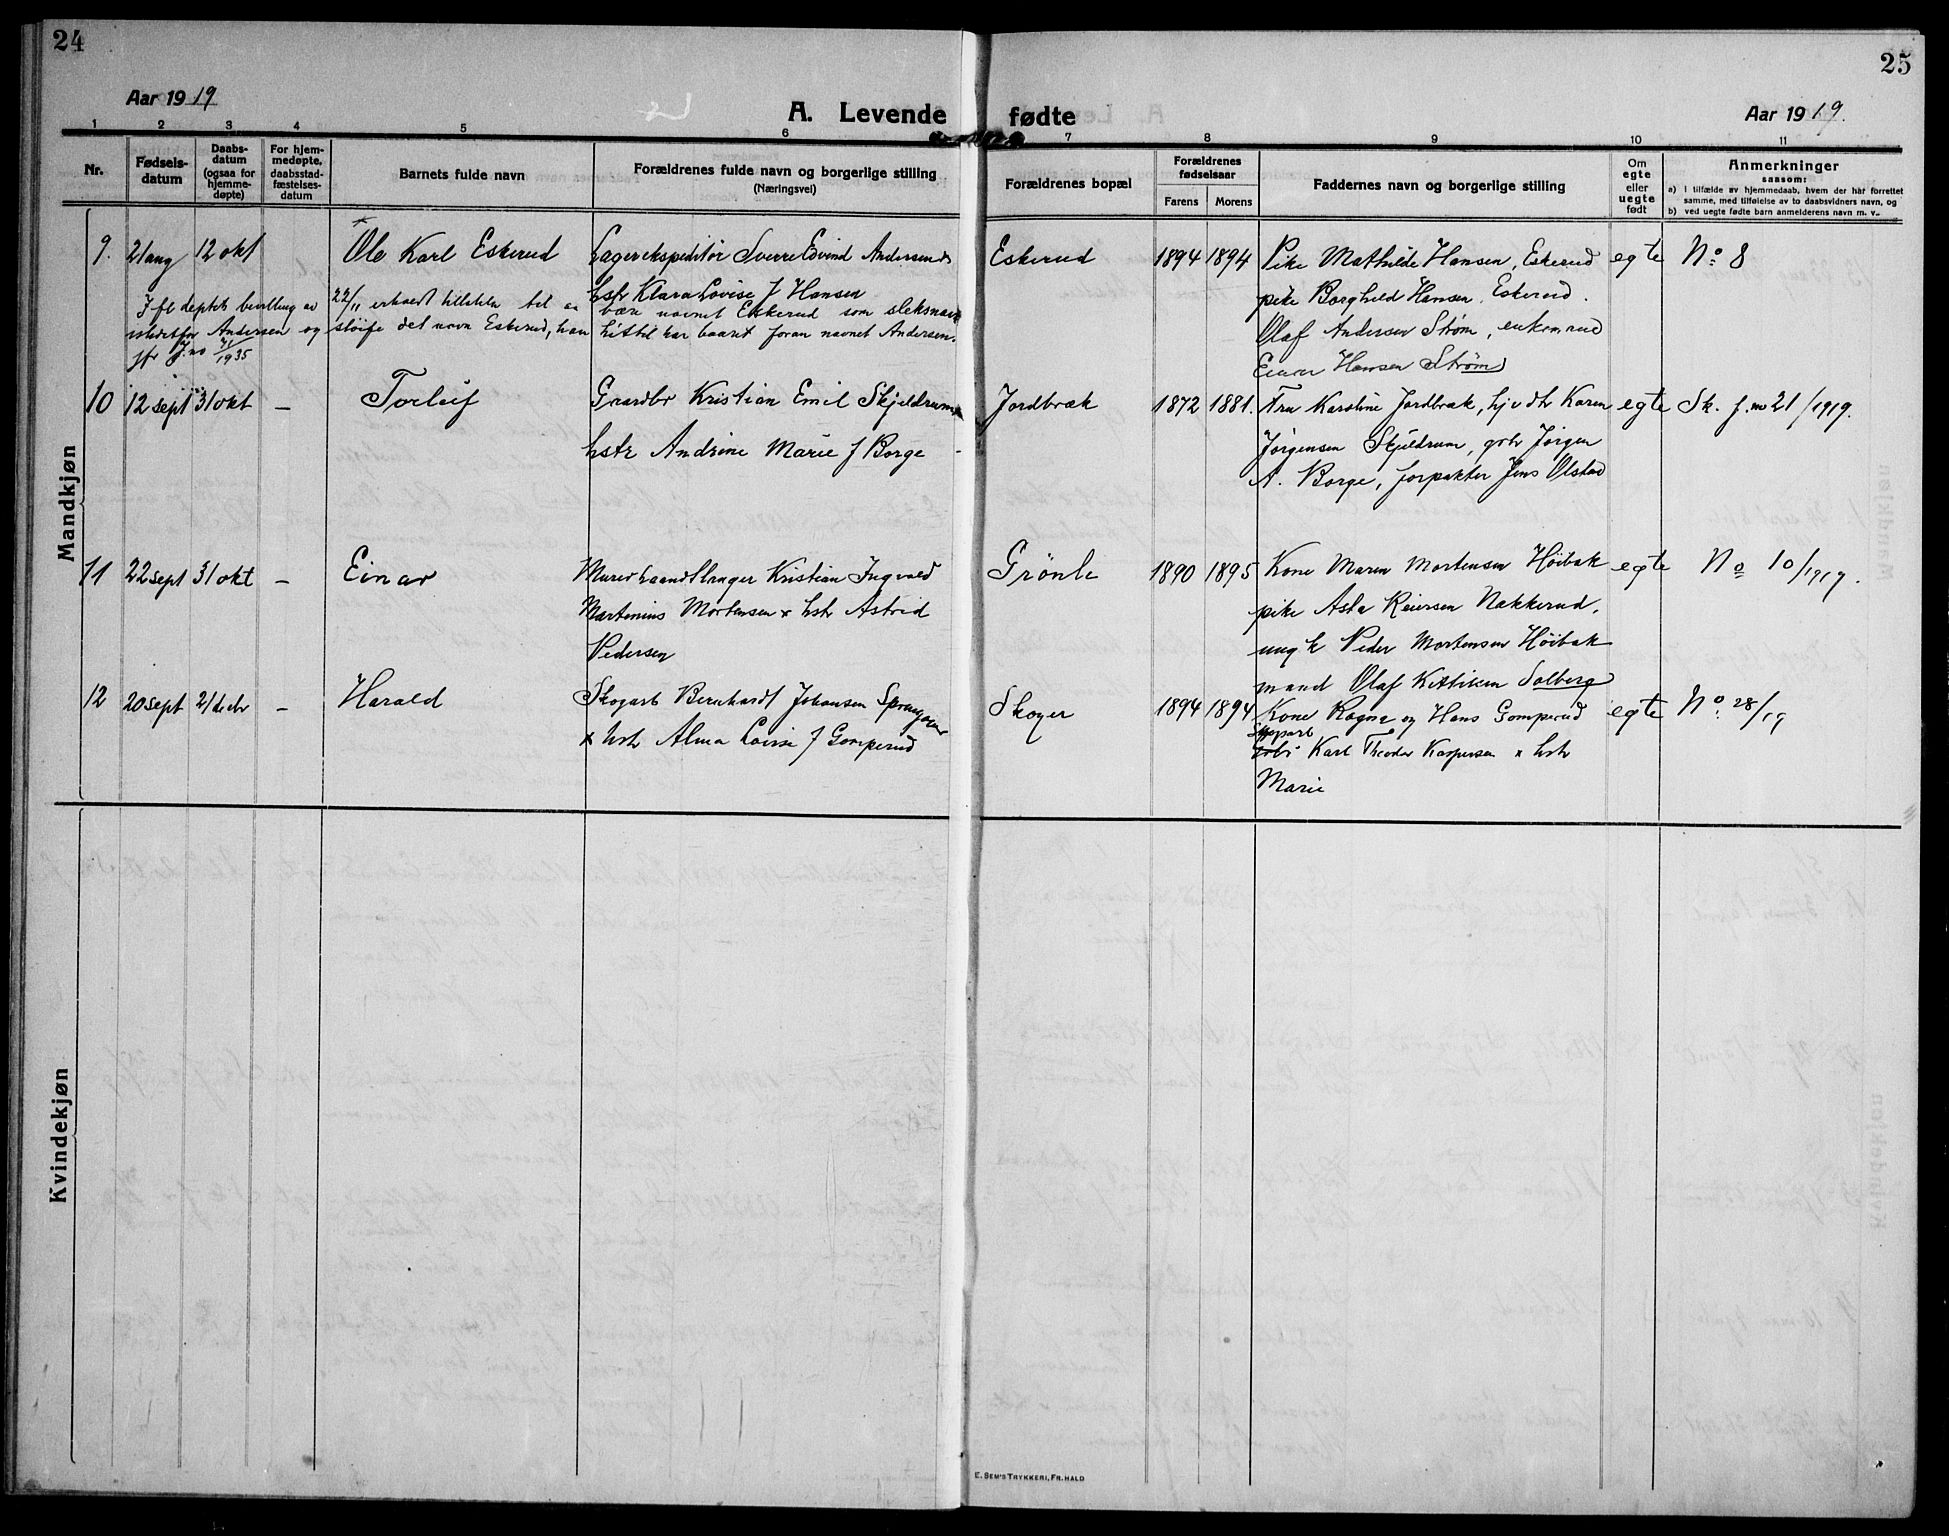 24
25
Aar 1919
A. Levende fødte
Aar 1919.
1 2 3 4 5 6 7 8 9 10 11
Nr.
Fødsels-
datum
Daabs-
datum
(ogsaa for
hjemme-
døpte)
For hjem-
medøpte,
daabsstad-
fæstelses-
datum
Barnets fulde navn
Forældrenes fulde navn og borgerlige stilling
(Næringsvei)
Forældrenes bopæl
Forældrenes
fødselsaar
Farens Morens
Faddernes navn og borgerlige stilling
Om
egte
eller
uegte
født
Anmerkninger
saasom:
a) i tilfælde av hjemmedaab, hvem der har forrettet
samme, med tilføielse av to daabsvidners navn, og
b) ved uegte fødte barn anmelderens navn m. v.
Mandkjøn
9. 21 aug 12 okt Ole Karl Eskerud Lagerekspeditör Sverre Edvind Andersen Eskerud 1894 1894 Pike Mathilde Hansen, Eskerud egte No 8
hstr Klara Lovise f Hansen
pike Borghild Hansen, Eskerud.
Ifl depts bevilling av 22/11 erholdt tilladelse til at bære navnet Eskerud som sleksnavn
istedetfor Andersen og sløife det navn Eskerud, han hittil har baaret foran navnet Andersen.
jfr J.no 71/1935
Olaf Andersen Strøm,
Einar Hansen Strøm
10 12 sept 31 okt – Torleif Gaardbr Kristian Emil Skjeldrum Jordbræk 1872 1881. Fru Karoline Jordbræk, hj v dtr Karen egte Sk. f. no 21/1919.
hstr Andrine Marie f Borge
Jørgensen Skjeldrum, gbr Jørgen
A. Borge, forpakter Jens Olstad
11 22 sept 31 okt – Einar Murerhaandlanger Kristian Ingvald Grönli 1890 1895 Kone Maren Mortensen Höibak egte No 10/1919.
Martinius Mortensen x hstr Astrid
pike Asta Reiersen Nakkerud,
Pedersen
ungk Peder Mortensen Höibak
mand Olaf Kittilsen Solberg
12 20 sept 21 decbr – Harald Skogarb Bernhardt Johansen Skoger 1894 1894 Kone Ragna og Hans Gomperud egte No 28/19
x hstr Alma Lovise f Gomperud
Skogarb
Karl Theodor Kaspersen x hstr
Marie
Kvindekjøn
E. SEM'S TRYKKERI, FR. HALD